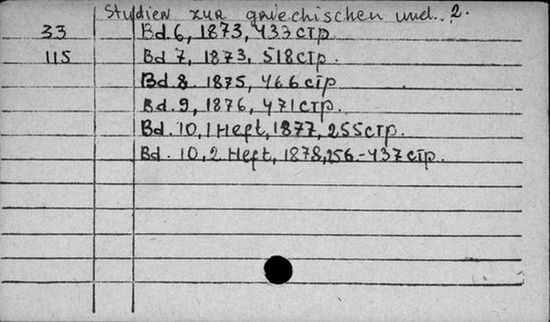 Studien zur griechischen und.. 2.
33 Bd. 6, 1873, 433 стр.
115 Bd 7, 1873, 518 стр.
Bd. 8. 1875, 466 стр.
Bd. 9, 1876, 471 стр.
Bd. 10, 1 Heft, 1877, 255 стр.
Bd. 10, 2 Heft, 1878, 256-437 стр.